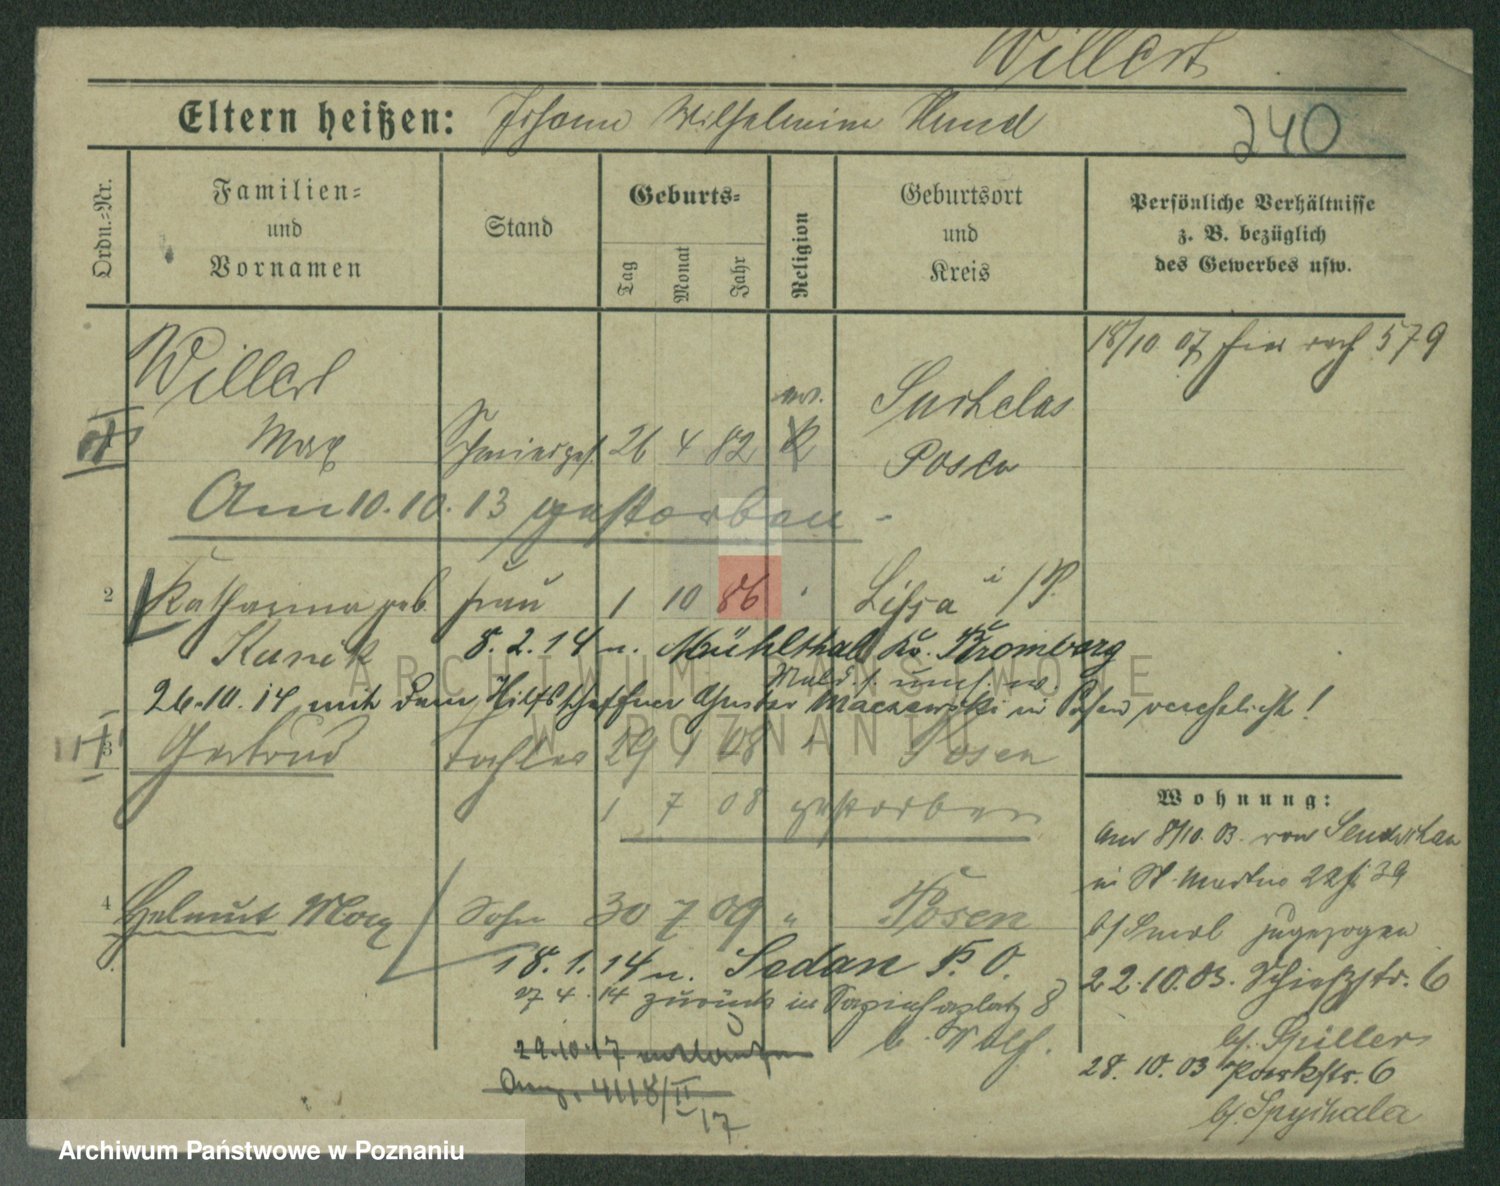 Willert
Eltern heißen: Johann Wilhelmine Hund
240
Ordn.-Nr.
Familien-
und
Vornamen
Stand
Geburts-
Tag
Monat
Jahr
Religion
Geburtsort
und
Kreis
Persönliche Verhältnisse
z. B. bezüglich
des Gewerbes usw.
18/10 07 hier nach 579
Willert
Max 26 4 82 K
Posen
Am 10.10.13 gestorben -
2 Katharina geb. Frau 1 10 86 Lissa i/P.
Kunik
8.2.14 n. Mühlthal Kr. Bromberg
26.10.14 mit dem Hilfsschaffner Gustav in Posen verehelicht!
3 Gertrud Tochter 29 1 08 " Posen
1 7 08 gestorben
4 Helmut Max Sohn 30 7 09 " Posen
18.1.14 n. Sedan P.O.
27 4. 14 zurück in Sapiehaplatz 8
b. Wolf.
29.10.17
4118/II
17
Wohnung:
Am 8/10. 03. von
in St. Martin 22 39
zugezogen
22.10.03. Schießstr. 6
b/ Spiller
28. 10. 03 Parkstr. 6
b/ Spychala
ARCHIWUM PAŃSTWOWE
W POZNANIU
Archiwum Państwowe w Poznaniu